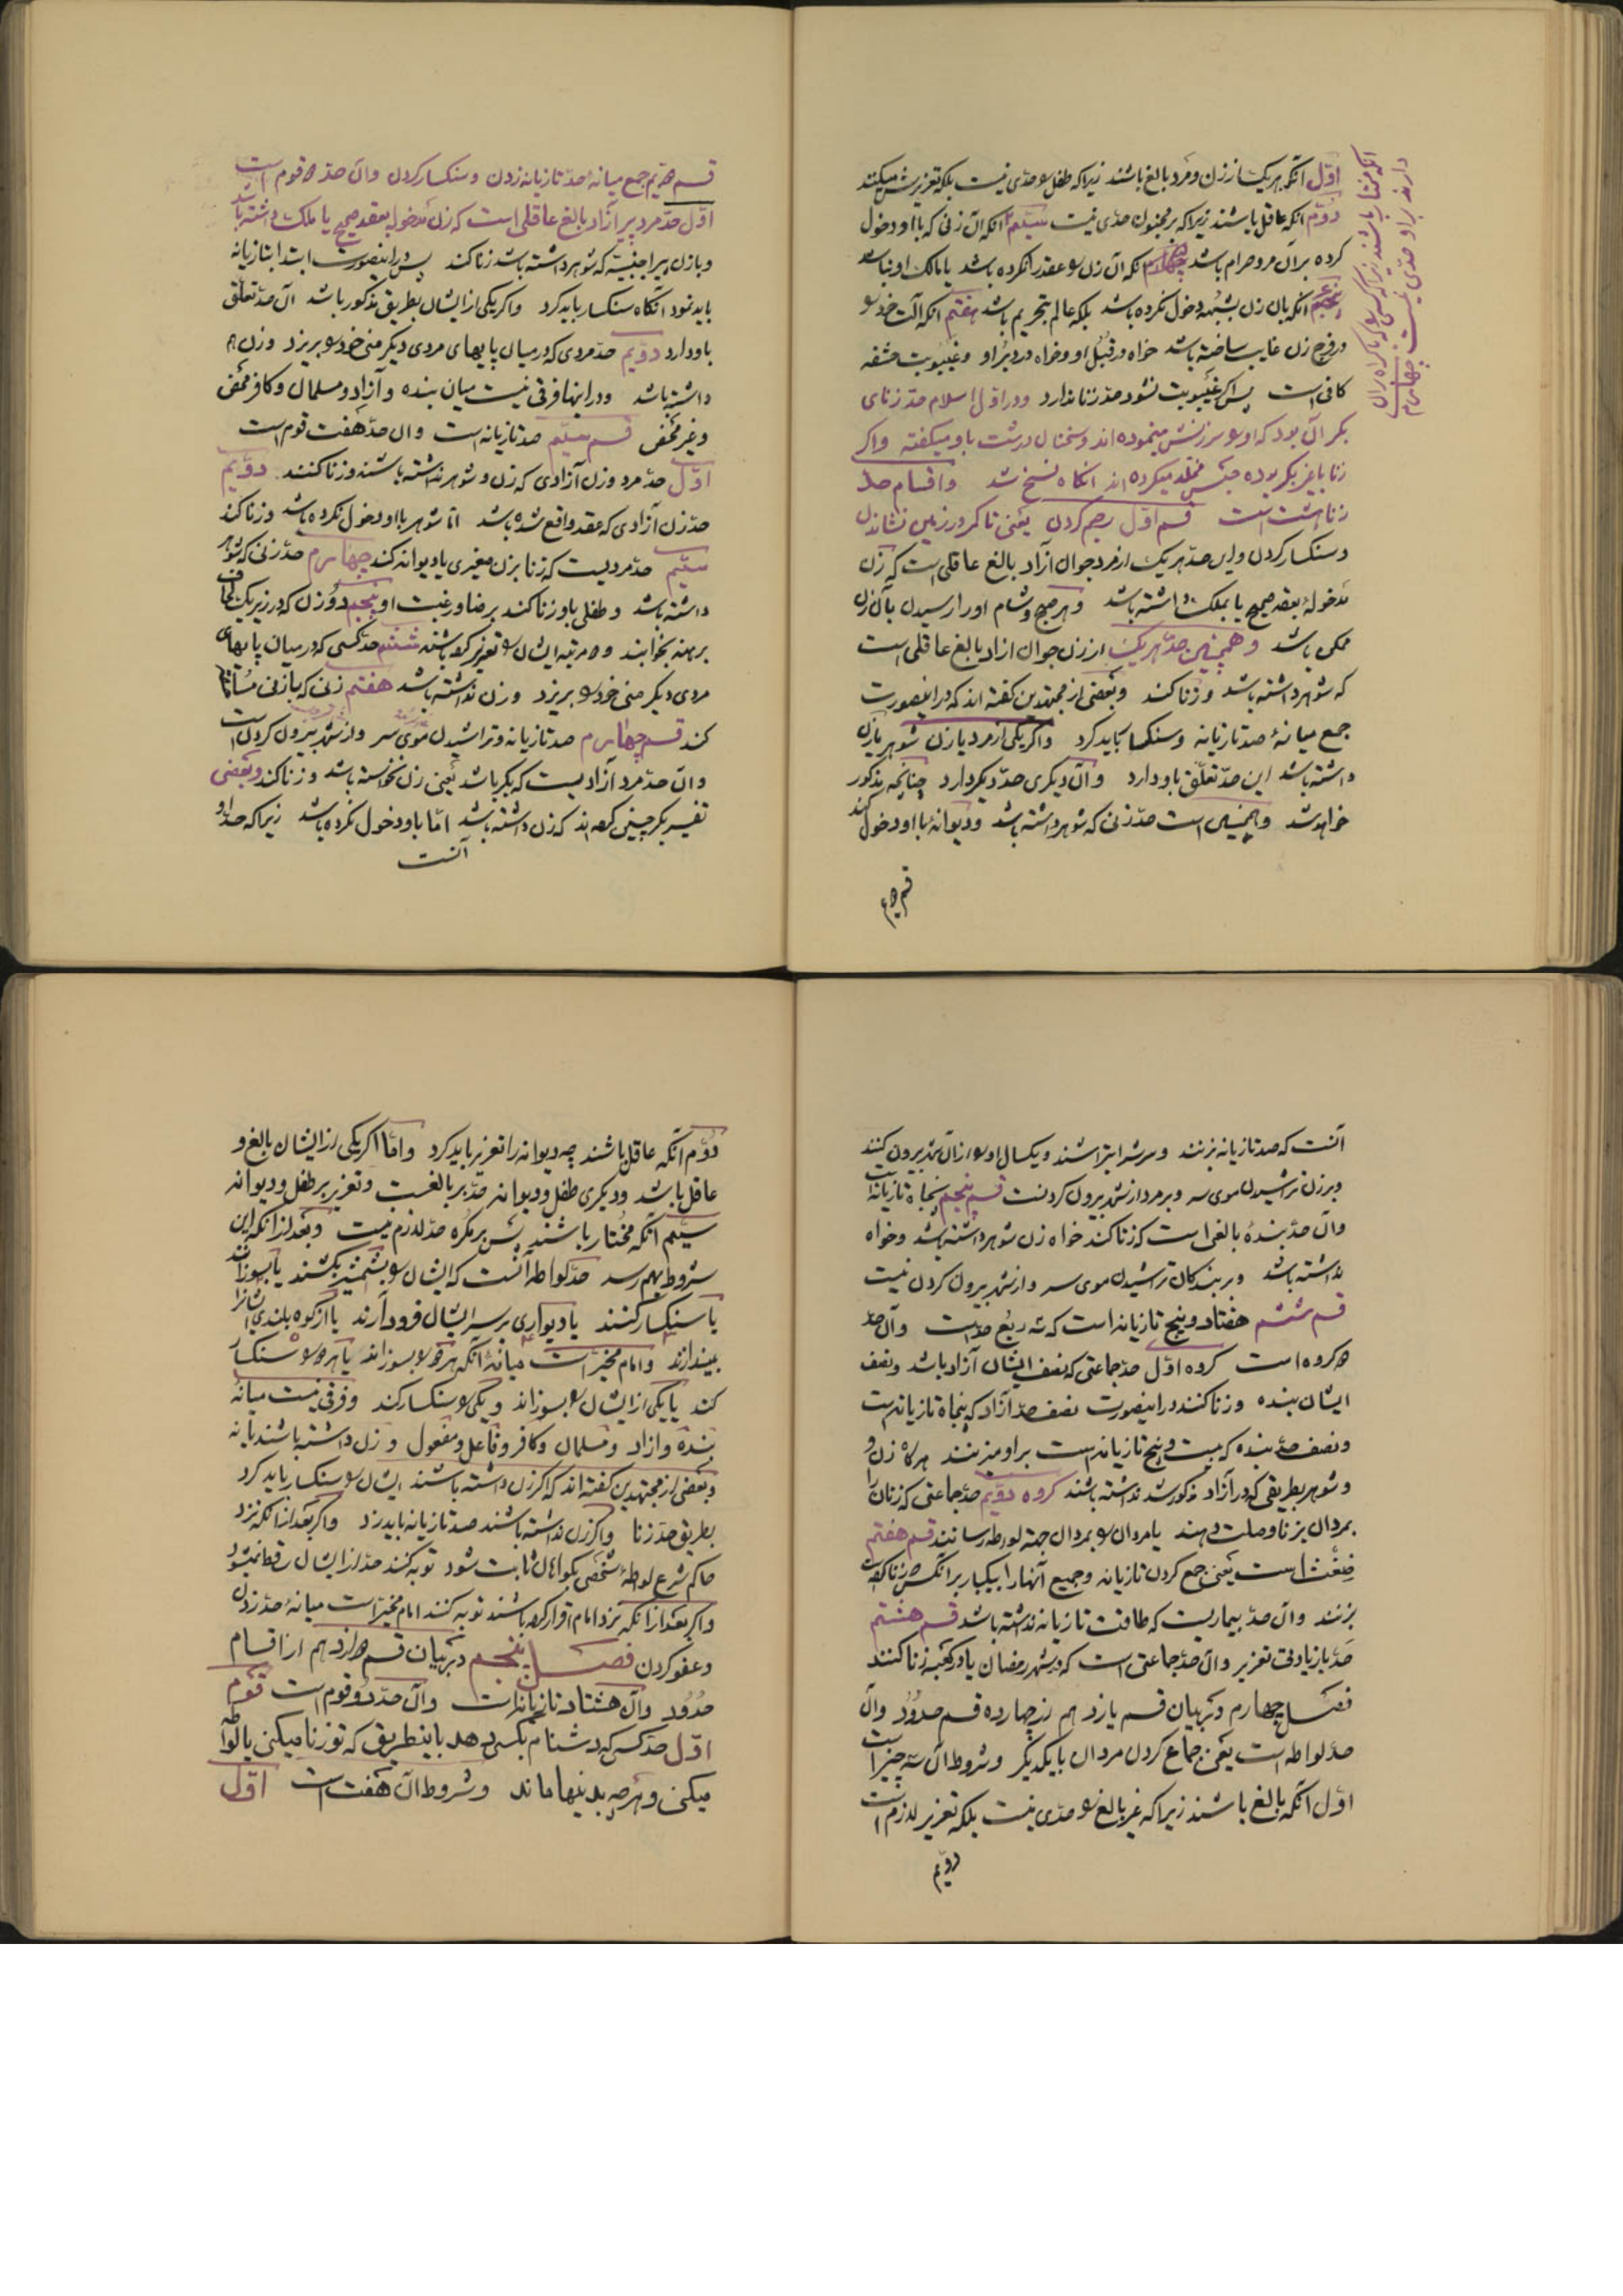 اوّل آنکه هریک از زن و مرد بالغ باشند زیرا که طفل را حدّی نیست بلکه تعزیرش میکنند
دوّم آنکه عاقل باشند زیرا که بر مجنون حدّی نیست سیّم آنکه آن زنی که با او دخول
کرده بر آن مرد حرام باشد چهارم آنکه آن زن را عقد نکرده باشد یا مالک او نباشد
پنجم آنکه بآن زن بشبهه دخول نکرده باشد بلکه عالم بتحریم باشد هفتم آنکه آلت خود را
در فرج زن غایب ساخته باشد خواه در قبُل او و خواه در دبر او و غیبوبت حشفه
کافی است پس اگر غیبوبت نشود حدّ زنا ندارد و در اوّل اسلام حدّ زنای
بکر آن بود که او را سرزنش مینموده‌اند و سخنان درشت باو میکفته و اکر
زنا با غیر بکر بوده حبس مخلّد میکرده‌اند آنکاه نسخ شد و اقسام حدّ
زنا هشت است قسم اوّل رجم کردن یعنی تا کمر در زمین نشاندن
و سنکسار کردن و این حدّ هریک از مرد جوان آزاد بالغ عاقلی است که زن
مدخوله بعقد صحیح یا بملک داشته باشد و هر صبح و شام او را رسیدن بآن زن
ممکن باشد و همچنین حدّ هریک از زن جوان آزاد بالغ عاقلی است
که شوهر داشته باشد و زنا کنند و بعضی از مجتهدین کفته‌اند که در اینصورت
جمع میانهٔ صد تازیانه و سنکسار باید کرد و اکر یکی از مرد یا زن شوهر یا زن
داشته باشد این حدّ تعلّق باو دارد و آن دیکری حدّ دیکر دارد چنانچه مذکور
خواهد شد و همچنین است حدّ زنی که شوهر داشته باشد و دیوانهٔ با او دخول کند
قسم دویم
آنکه مختار باشند زیرا که کسی را که باکراه بر آن
دارند بر او حدّی نیست چهارم
قسم دویم جمع میانهٔ حدّ تازیانه زدن و سنکسار کردن و آن حدّ دو قوم است
اوّل حدّ مرد پیر آزاد بالغ عاقلی است که زن مدخوله بعقد صحیح یا ملک داشته باشد
و با زن پیر اجنبیّه که شوهر داشته باشد زنا کند پس در اینصورت ابتدا بتازیانه
باید نمود آنکاه سنکسار باید کرد و اکر یکی از ایشان بطریق مذکور باشد آن حدّ تعلّق
باو دارد دوّیم حدّ مردی که در میان پایهای مردی دیکر منی خود را بریزد و زن هم
داشته باشد و در اینها فرقی نیست میان بنده و آزاد و مسلمان و کافر محض
و غیر محض قسم سیّم صد تازیانه است و آن حدّ هفت قوم است
اوّل حدّ مرد و زن آزادی که زن و شوهر نداشته باشند و زنا کنند دوّیم
حدّ زن آزادی که عقد واقع شده باشد امّا شوهر با او دخول نکرده باشد و زنا کند
سیّم حدّ مردیست که زنا بزن صغیری یا دیوانه کند چهارم حدّ زنی که شوهر
داشته باشد و طفلی باو زنا کند برضا و رغبت او پنجم دو زن که در زیر یک لحاف
برهنه بخوابند و دو مرتبه ایشان را تعزیر کرده باشند ششم حدّ کسی که در میان پایهای
مردی دیکر منی خود را بریزد و زن نداشته باشد هفتم زنی که با زنی مساحقه
کند قسم چهارم صد تازیانه و تراشیدن موی سر و از شهر بیرون کردن است
و آن حدّ مرد آزادیست که بکر باشد یعنی زن نخواسته باشد و زنا کند و بعضی
تفسیر بکر چنین کرده‌اند که زن داشته باشد امّا باو دخول نکرده باشد زیرا که حدّ او
آنست
آنست که صد تازیانه بزنند و سرش را بتراشند و یکسال او را از آن شهر بیرون کنند
و بر زن تراشیدن موی سر و بر مرد از شهر بیرون کردنست قسم پنجم پنجاه تازیانه است
و آن حدّ بندهٔ بالغی است که زنا کند خواه زن شوهر داشته باشد و خواه
نداشته باشد و بر بندکان تراشیدن موی سر و از شهر بیرون کردن نیست
قسم ششم هفتاد و پنج تازیانه است که سه ربع حدّ است و آن حدّ
دو کروه است کروه اوّل حدّ جماعتی که نصف ایشان آزاد باشد و نصف
ایشان بنده و زنا کنند در اینصورت نصف حدّ آزاد که پنجاه تازیانه است
و نصف حدّ بنده که بیست و پنج تازیانه است بر او میزنند هرکاه زن و
و شوهر بطریقی که در آزاد مذکور شد نداشته باشند کروه دوّیم حدّ جماعتی که زنان را
بمردان بزنا وصلت دهند یا مردان را بمردان جهة لواطه رسانند قسم هفتم
ضغث است یعنی جمع کردن تازیانه و جمیع آنها را بیکبار بر آنکس که زنا کرده است
بزنند و آن حدّ بیماریست که طاقت تازیانه نداشته باشد قسم هشتم
حدّ با زیادتی تعزیر و آن حدّ جماعتی است که در شهر رمضان یا در کعبه زنا کنند
فصل چهارم در بیان قسم یازدهم از چهارده قسم حدود و آن
حدّ لواطه است یعنی جماع کردن مردان با یکدیکر و شروط آن سه چیز است
اوّل آنکه بالغ باشند زیرا که غیر بالغ را حدّی نیست بلکه تعزیر لازم است
دوّیم
دوّم آنکه عاقل باشند چه دیوانه را تعزیر باید کرد و امّا اکر یکی از ایشان بالغ و
عاقل باشد و دیکری طفل و دیوانه حدّ بر بالغست و تعزیر بر طفل و دیوانه
سیّم آنکه مختار باشند پس بر مکره حدّ لازم نیست و بعد از آنکه این
شروط بهم رسد حدّ لواطه آنست که ایشان را بشمشیر بکشند یا بسوزانند
یا سنکسار کنند یا دیواری بر سر ایشان فرود آرند یا از کوه بلندی ایشانرا
بیندازند و امام مخیّر است میانهٔ آنکه هردو را بسوزاند یا هردو را سنکسار
کند یا یکی از ایشان را بسوزاند و یکی را سنکسار کند و فرقی نیست میانهٔ
بنده و آزاد و مسلمان و کافر و فاعل و مفعول و زن داشته باشند یا نه
و بعضی از مجتهدین کفته‌اند که اکر زن داشته باشند ایشان را سنکسار باید کرد
بطریق حدّ زنا و اکر زن نداشته باشند صد تازیانه باید زد و اکر بعد از آنکه نزد
حاکم شرع لواطهٔ شخصی بکواهان ثابت شود توبه کنند حدّ از ایشان ساقط نمیشود
و اکر بعد از آنکه نزد امام اقرار کرده باشند توبه کنند امام مخیّر است میانهٔ حدّ زدن
و عفو کردن فصل پنجم در بیان قسم دوازدهم از اقسام
حدود و آن هشتاد تازیانه است و آن حدّ دو قوم است قوم
اوّل حدّ کسی که دشنام بکسی دهد باینطریق که تو زنا میکنی یا لواطه
میکنی و هرچه بدینها ماند و شروط آن هفت است اوّل